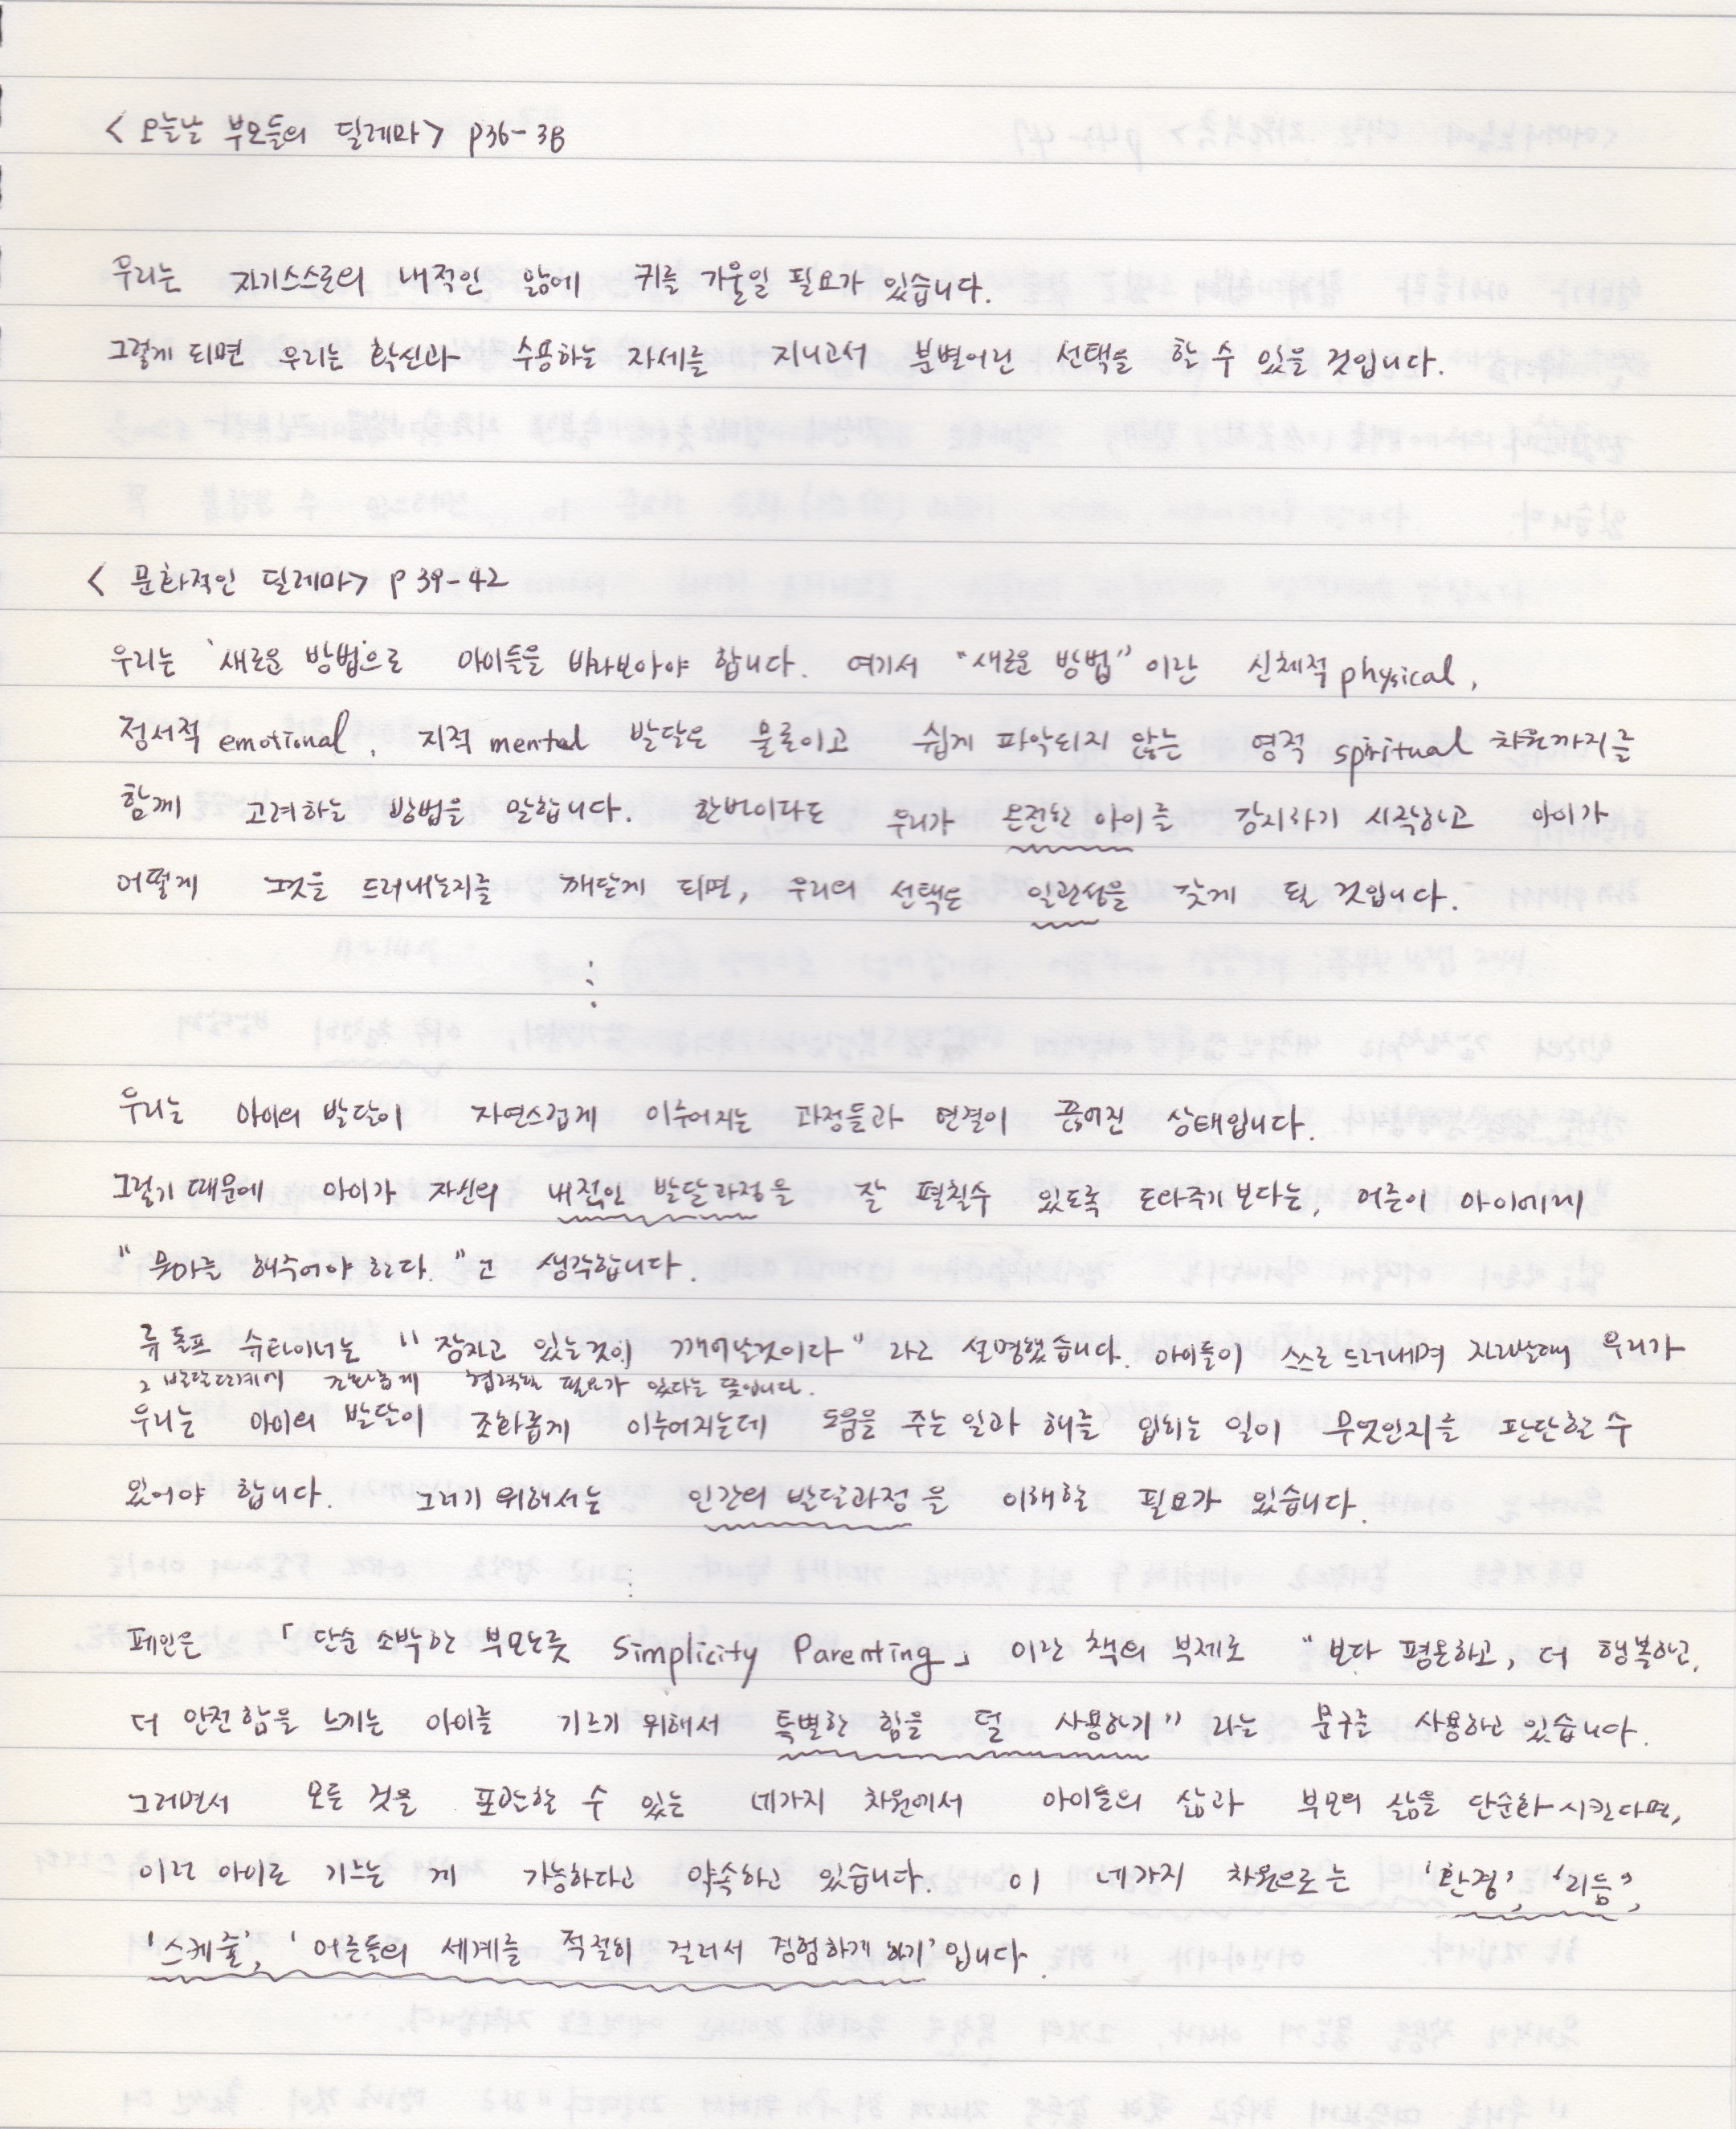 < 오늘날 부모들의 딜레마> p36-38
우리는 자기스스로의 내적인 앎에 귀를 기울일 필요가 있습니다.
그렇게 되면 우리는 확신과 수용하는 자세를 지니고서 분별어린 선택을 할 수 있을 것입니다.
< 문화적인 딜레마> p 39-42
우리는 '새로운 방법'으로 아이들을 바라보아야 합니다. 여기서 "새로운 방법" 이란 신체적 physical,
정서적 emotional, 지적 mental 발달은 물론이고 쉽게 파악되지 않는 영적 spiritual 차원까지를
함께 고려하는 방법을 말합니다. 한번이라도 우리가 온전한 아이를 감지하기 시작하고 아이가
어떻게 그것을 드러내는지를 깨닫게 되면, 우리의 선택은 일관성을 갖게 될 것입니다.
⋮
우리는 아이의 발달이 자연스럽게 이루어지는 과정들과 연결이 끊어진 상태입니다.
그렇기 때문에 아이가 자신의 내적인 발달과정을 잘 펼칠수 있도록 도와주기 보다는, 어른이 아이에게
"뭔가를 해주어야 한다."고 생각합니다.
루돌프 슈타이너는 "잠자고 있는것이 깨어날것이다" 라고 설명했습니다. 아이들이 스스로 드러내며 자라날때 우리가
그 발달단계에 조화롭게 협력할 필요가 있다는 뜻입니다.
우리는 아이의 발달이 조화롭게 이루어지는데 도움을 주는 일과 해를 입히는 일이 무엇인지를 판단할 수
있어야 합니다. 그러기 위해서는 인간의 발달과정을 이해할 필요가 있습니다.
⋮
페인은 「단순 소박한 부모노릇 Simplicity Parenting」 이란 책의 부제로 "보다 평온하고, 더 행복하고,
더 안전함을 느끼는 아이를 기르기 위해서 특별한 힘을 덜 사용하기" 라는 문구를 사용하고 있습니다.
그러면서 모든 것을 포함할 수 있는 네가지 차원에서 아이들의 삶과 부모의 삶을 단순화 시킨다면,
이런 아이로 기르는 게 가능하다고 약속하고 있습니다. 이 네가지 차원으로는 '환경', '리듬',
'스케줄', '어른들의 세계를 적절히 걸러서 경험하게 하기' 입니다.